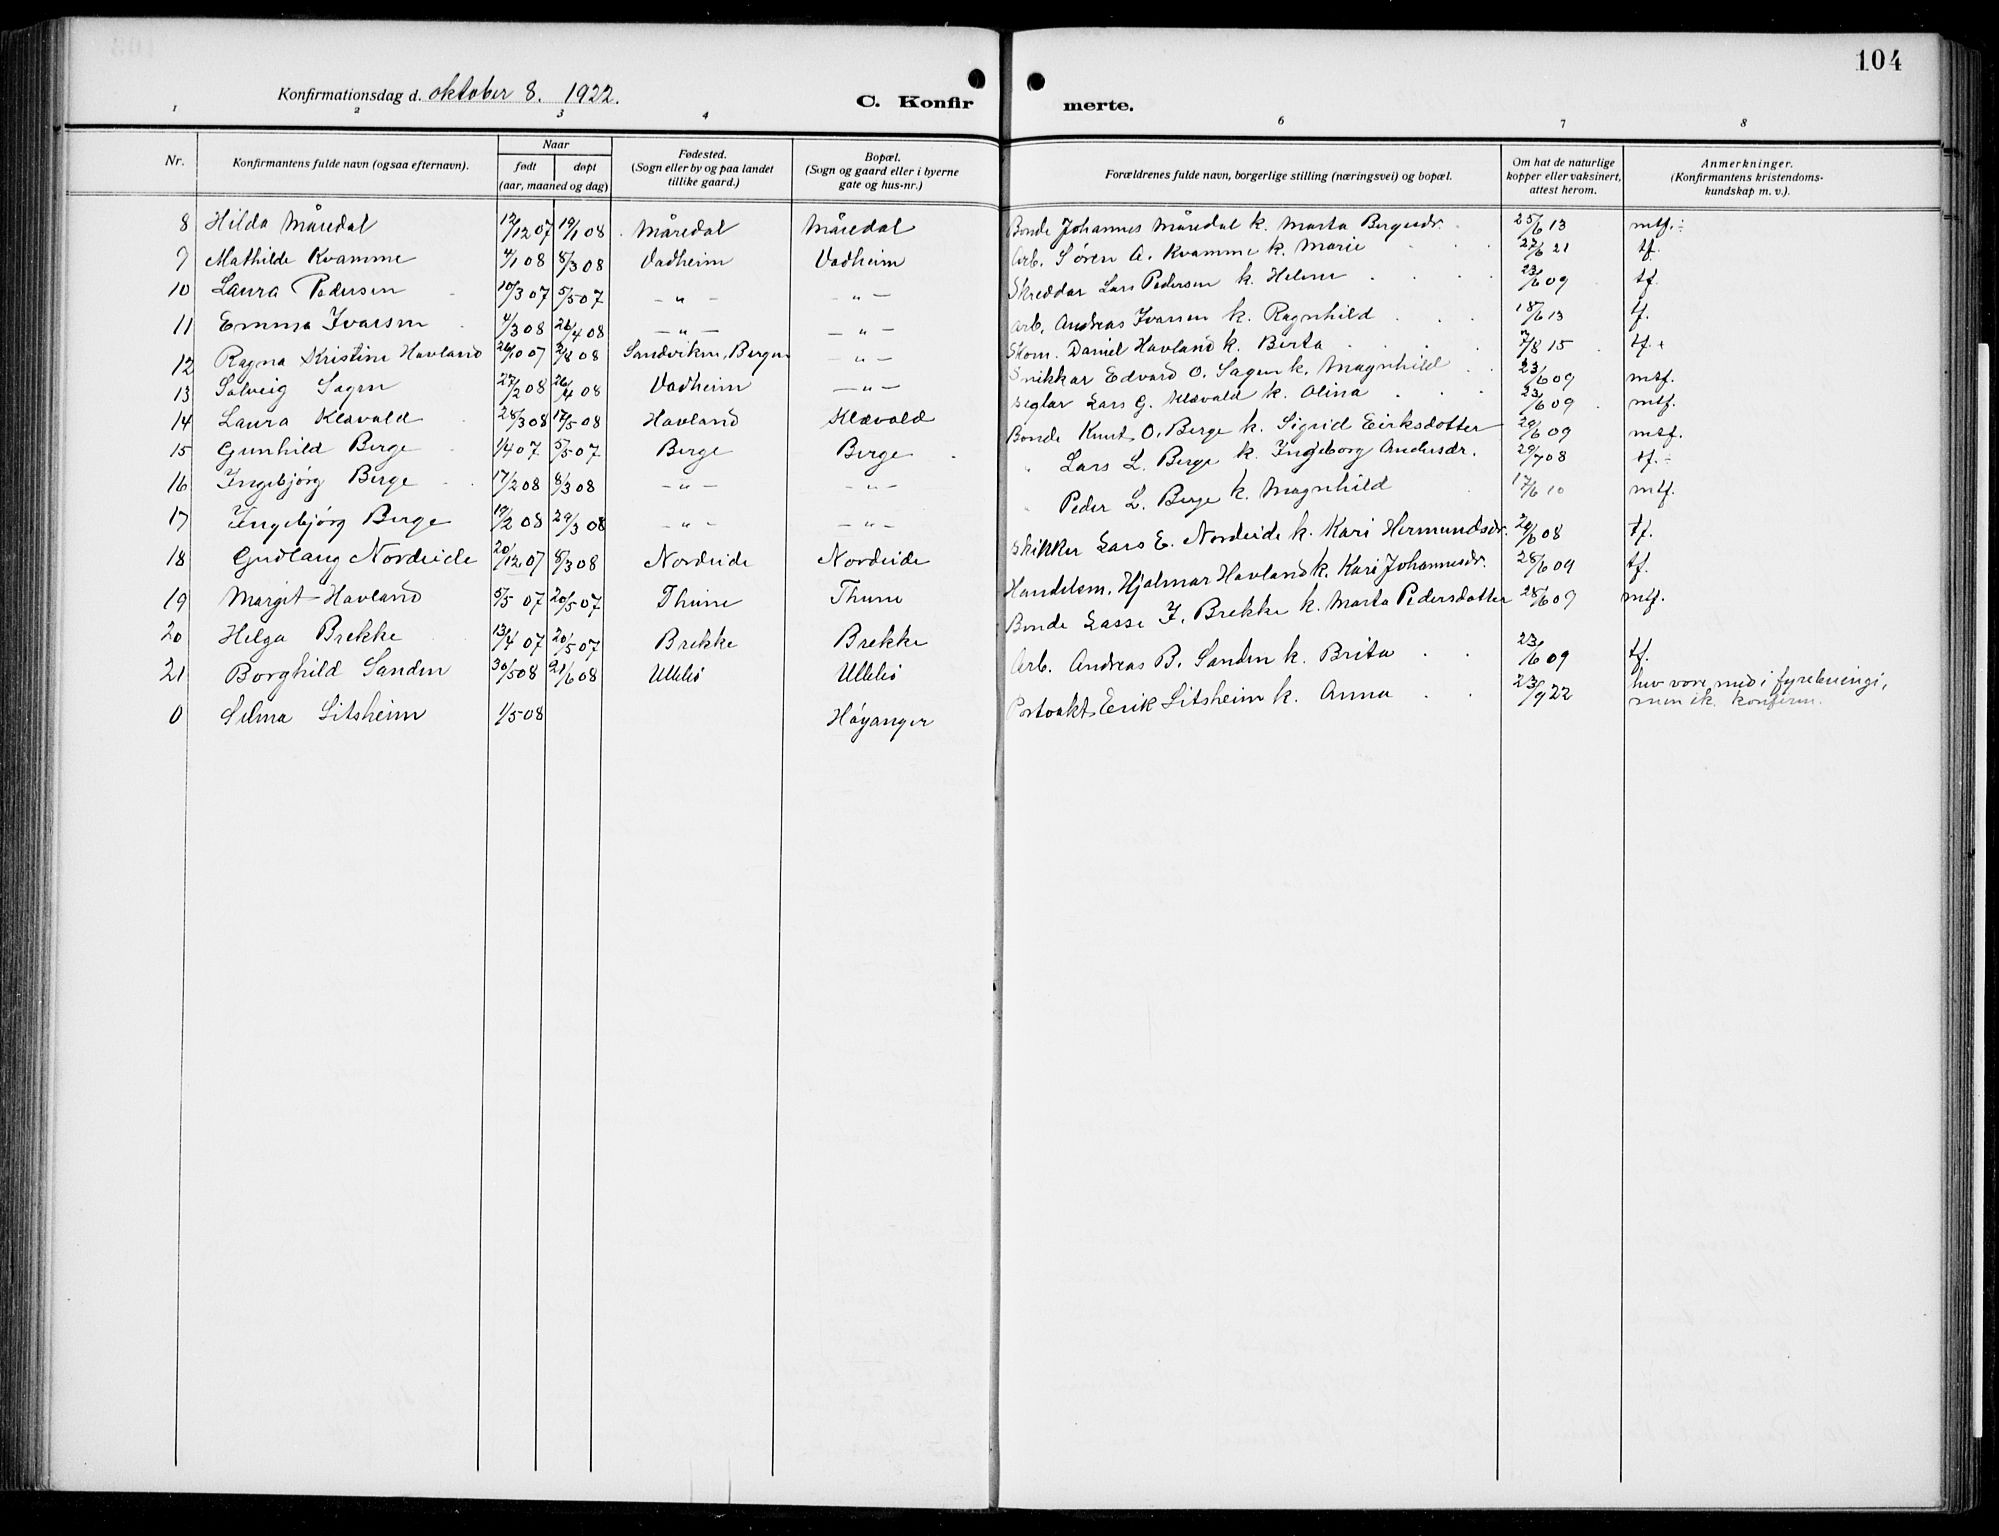 104
Konfirmationsdag d. oktober 8. 1922.
C. Konfirmerte.
1 2 3 4 6 7 8
Nr. Konfirmantens fulde navn (ogsaa efternavn). Naar født døpt (aar, maaned og dag) Fødested. (Sogn eller by og paa landet tillike gaard.) Bopæl. (Sogn og gaard eller i byerne gate og hus-nr.) Forældrenes fulde navn, borgerlige stilling (næringsvei) og bopæl. Om hat de naturlige kopper eller vaksinert, attest herom. Anmerkninger. (Konfirmantens kristendoms-kundskap m. v.).
8 Hilda Måredal 12/12 07 19/1 08 Måredal Måredal Bonde Johannes Måredal k. Marta Bergesdr. 25/6 13 mtf.
9 Mathilde Kvamme 4/1 08 8/3 08 Vadheim Vadheim Arb. Søren A. Kvamme k. Marie 27/6 21 tf.
10 Laura Pedersen 10/3 07 5/5 07 — " — — " — Skreddar Lars Pedersen k. Helene 23/6 09 tf.
11 Emma Ivarsen 4/3 08 26/4 08 — " — — " — Arb. Andreas Ivarsen k. Ragnhild 18/6 13 tf.
12 Ragna Kristine Havland 26/10 07 2/8 08 Sandviken, Bergen — " — Skom. Daniel Havland k. Berta 7/8 15 tf.
13 Solveig Sagen 27/2 08 26/4 08 Vadheim — " — Snikkar Edvard O. Sagen k. Magnhild 23/6 09 mtf.
14 Laura Klævold 28/3 08 17/5 08 Havland Klævold Seglar Lars G. Klævold k. Olina 23/6 09 mtf.
15 Gunhild Berge 1/4 07 5/5 07 Berge Berge Bonde Knut O. Berge k. Sigrid Eirksdotter 29/6 09 mtf.
16 Ingebjørg Berge 17/2 08 8/3 08 — " — — " — " Lars L. Berge k. Ingeborg Andersdr. 29/7 08 tf.
17 Ingebjørg Berge 19/2 08 29/3 08 — " — — " — " Peder L. Berge k. Magnhild 17/6 10 mtf.
18 Gudlaug Nordeide 20/12 07 8/3 08 Nordeide Nordeide Lars E. Nordeide k. Kari Hermundsdr. 29/6 08 tf.
19 Margit Havland 5/5 07 20/5 07 Thune Thune Handelsm. Hjalmar Havland k. Kari Johannesdr. 28/6 09 tf.
20 Helga Brekke 13/4 07 20/5 07 Brekke Brekke Bonde Lasse I. Brekke k. Marta Pedersdotter 28/6 09 mtf.
21 Borghild Sanden 30/5 08 21/6 08 Ullebø Ullebø Arb. Andreas B. Sanden k. Brita 23/6 09 tf.
0 Selma Sitsheim 1/5 08 Høyanger Erik Sitsheim k. Anna 23/9 22 hev vore med i fyrebuingi,
men ik. konferm.